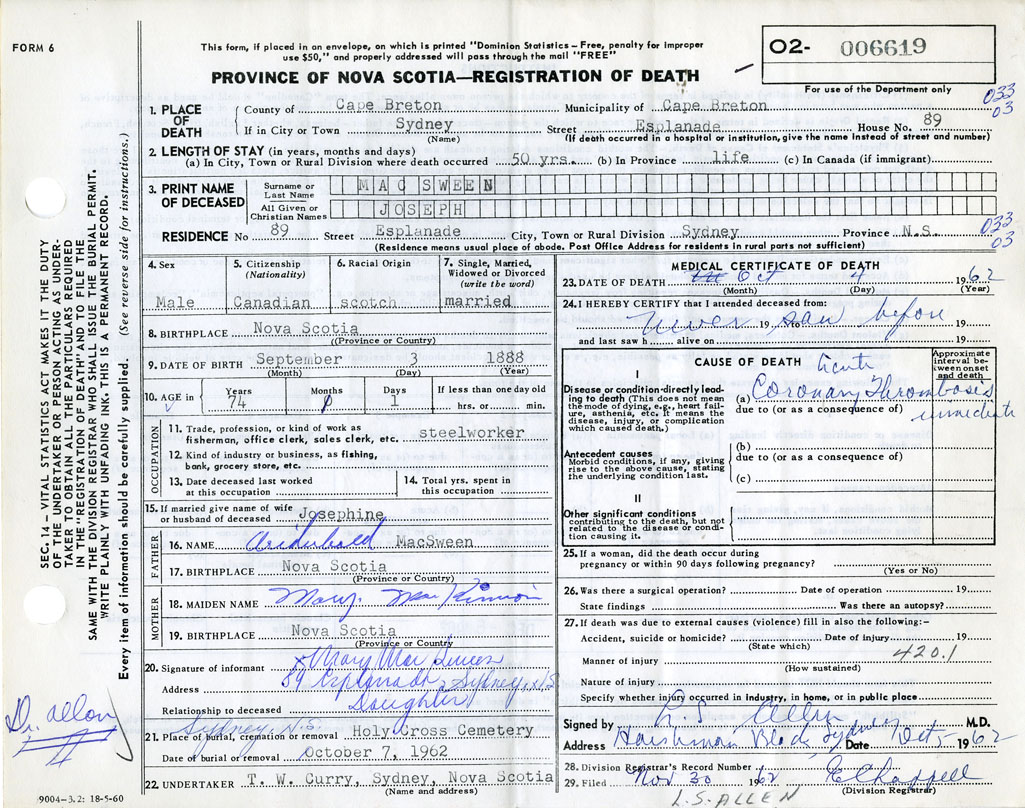 FORM 6
This form, if placed in an envelope, on which is printed "Dominion Statistics – Free, penalty for improper
use $50," and properly addressed will pass through the mail "FREE"
PROVINCE OF NOVA SCOTIA—REGISTRATION OF DEATH
O2- 006619
For use of the Department only
033
03
1. PLACE OF DEATH
County of Cape Breton Municipality of Cape Breton
If in City or Town Sydney Street Esplanade House No. 89
(Name) (If death occurred in a hospital or institution, give the name instead of street and number)
2. LENGTH OF STAY (in years, months and days)
(a) In City, Town or Rural Division where death occurred 50 yrs. (b) In Province life (c) In Canada (if immigrant)
3. PRINT NAME OF DECEASED
Surname or Last Name MAC SWEEN
All Given or Christian Names JOSEPH
RESIDENCE No 89 Street Esplanade City, Town or Rural Division Sydney Province N.S.
(Residence means usual place of abode. Post Office Address for residents in rural parts not sufficient)
033
03
4. Sex Male
5. Citizenship (Nationality) Canadian
6. Racial Origin scotch
7. Single, Married, Widowed or Divorced (write the word) married
8. BIRTHPLACE Nova Scotia
(Province or Country)
9. DATE OF BIRTH September 3 1888
(Month) (Day) (Year)
10. AGE in Years 74 Months 0 Days 1 If less than one day old hrs. or min.
OCCUPATION
11. Trade, profession, or kind of work as fisherman, office clerk, sales clerk, etc. steelworker
12. Kind of industry or business, as fishing, bank, grocery store, etc.
13. Date deceased last worked at this occupation
14. Total yrs. spent in this occupation
15. If married give name of wife or husband of deceased Josephine
FATHER
16. NAME Archibald MacSween
17. BIRTHPLACE Nova Scotia
(Province or Country)
MOTHER
18. MAIDEN NAME Mary MacKinnon
19. BIRTHPLACE Nova Scotia
(Province or Country)
20. Signature of informant x Mary MacSween
Address 89 Esplanade, Sydney, N.S.
Relationship to deceased Daughter
Sydney, N.S.
21. Place of burial, cremation or removal Holy Cross Cemetery
Date of burial or removal October 7, 1962
22. UNDERTAKER T. W. Curry, Sydney, Nova Scotia
(Name and address)
MEDICAL CERTIFICATE OF DEATH
23. DATE OF DEATH Oct 4 1962
(Month) (Day) (Year)
24. I HEREBY CERTIFY that I attended deceased from:
Never 19 to saw before 19
and last saw h alive on 19
CAUSE OF DEATH
Approximate interval between onset and death
I
Disease or condition directly leading to death (This does not mean the mode of dying, e.g., heart failure, asthenia, etc. It means the disease, injury, or complication which caused death.)
Acute
(a) Coronary Thrombosis
due to (or as a consequence of)
immediate
Antecedent causes
Morbid conditions, if any, giving rise to the above cause, stating the underlying condition last.
(b)
due to (or as a consequence of)
(c)
II
Other significant conditions
contributing to the death, but not related to the disease or condition causing it.
25. If a woman, did the death occur during
pregnancy or within 90 days following pregnancy?
(Yes or No)
26. Was there a surgical operation? Date of operation 19
State findings Was there an autopsy?
27. If death was due to external causes (violence) fill in also the following:-
Accident, suicide or homicide? Date of injury 19
(State which)
420.1
Manner of injury
(How sustained)
Nature of injury
Specify whether injury occurred in industry, in home, or in public place
Signed by L S Allen M.D.
Address Harshman Block, Sydney Date Oct 5 1962
28. Division Registrar's Record Number
29. Filed Nov 30 1962 E Chappell
(Division Registrar)
L.S. ALLEN
SEC. 14 – VITAL STATISTICS ACT MAKES IT THE DUTY
OF THE UNDERTAKER OR PERSON ACTING AS UNDER-
TAKER TO OBTAIN ALL THE PARTICULARS REQUIRED
IN THE "REGISTRATION OF DEATH" AND TO FILE THE
SAME WITH THE DIVISION REGISTRAR WHO SHALL ISSUE THE BURIAL PERMIT.
WRITE PLAINLY WITH UNFADING INK. THIS IS A PERMANENT RECORD.
Every item of information should be carefully supplied. (See reverse side for instructions.)
Dr. Allen
9004-3.2: 18-5-60